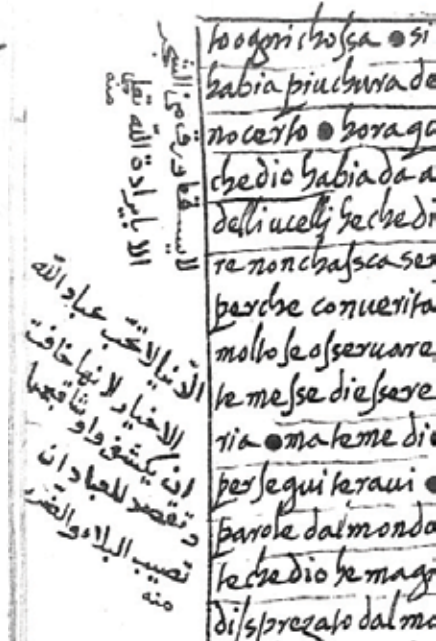 لا يسقط ورق من الشجر
الا بإرادة الله تعالى
منه
الدنيا لا تحب عباد الله
الاخيار لانها خافت
ان يكشفوا
وتقصد للعباد ان
تصيب البلاء والضرر
منه
to ogni chossa ● si
habia piu chura de
no certo ● hora qu
che dio habia da a
delli ucelli he che di
re non chassca sen
perche con uerita
molto se osseruare
te messe di essere
ria ● ma teme di
perseguiteraui ●
parole dal mondo
te che dio he magi
dissprezato dal mo